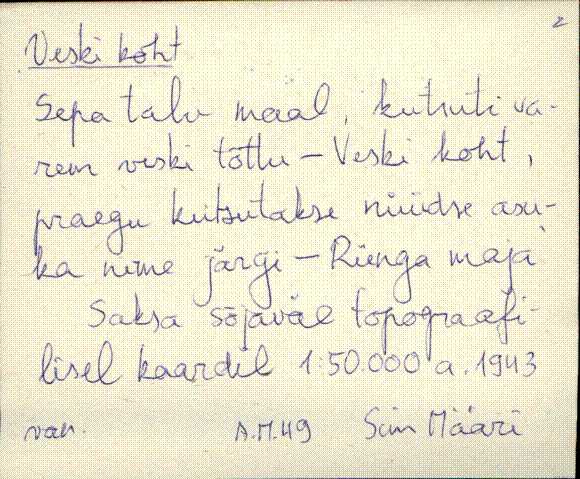 2
Veski koht
Sepa talu maal, kutsuti va-
rem veski tõttu – Veski koht,
praegu kutsutakse nüüdse asu-
ka nime järgi – Riinga maja
Saksa sõjaväe topograafi-
lisel kaardil 1:50.000 a. 1943
van. A.M.49 Siim Määri